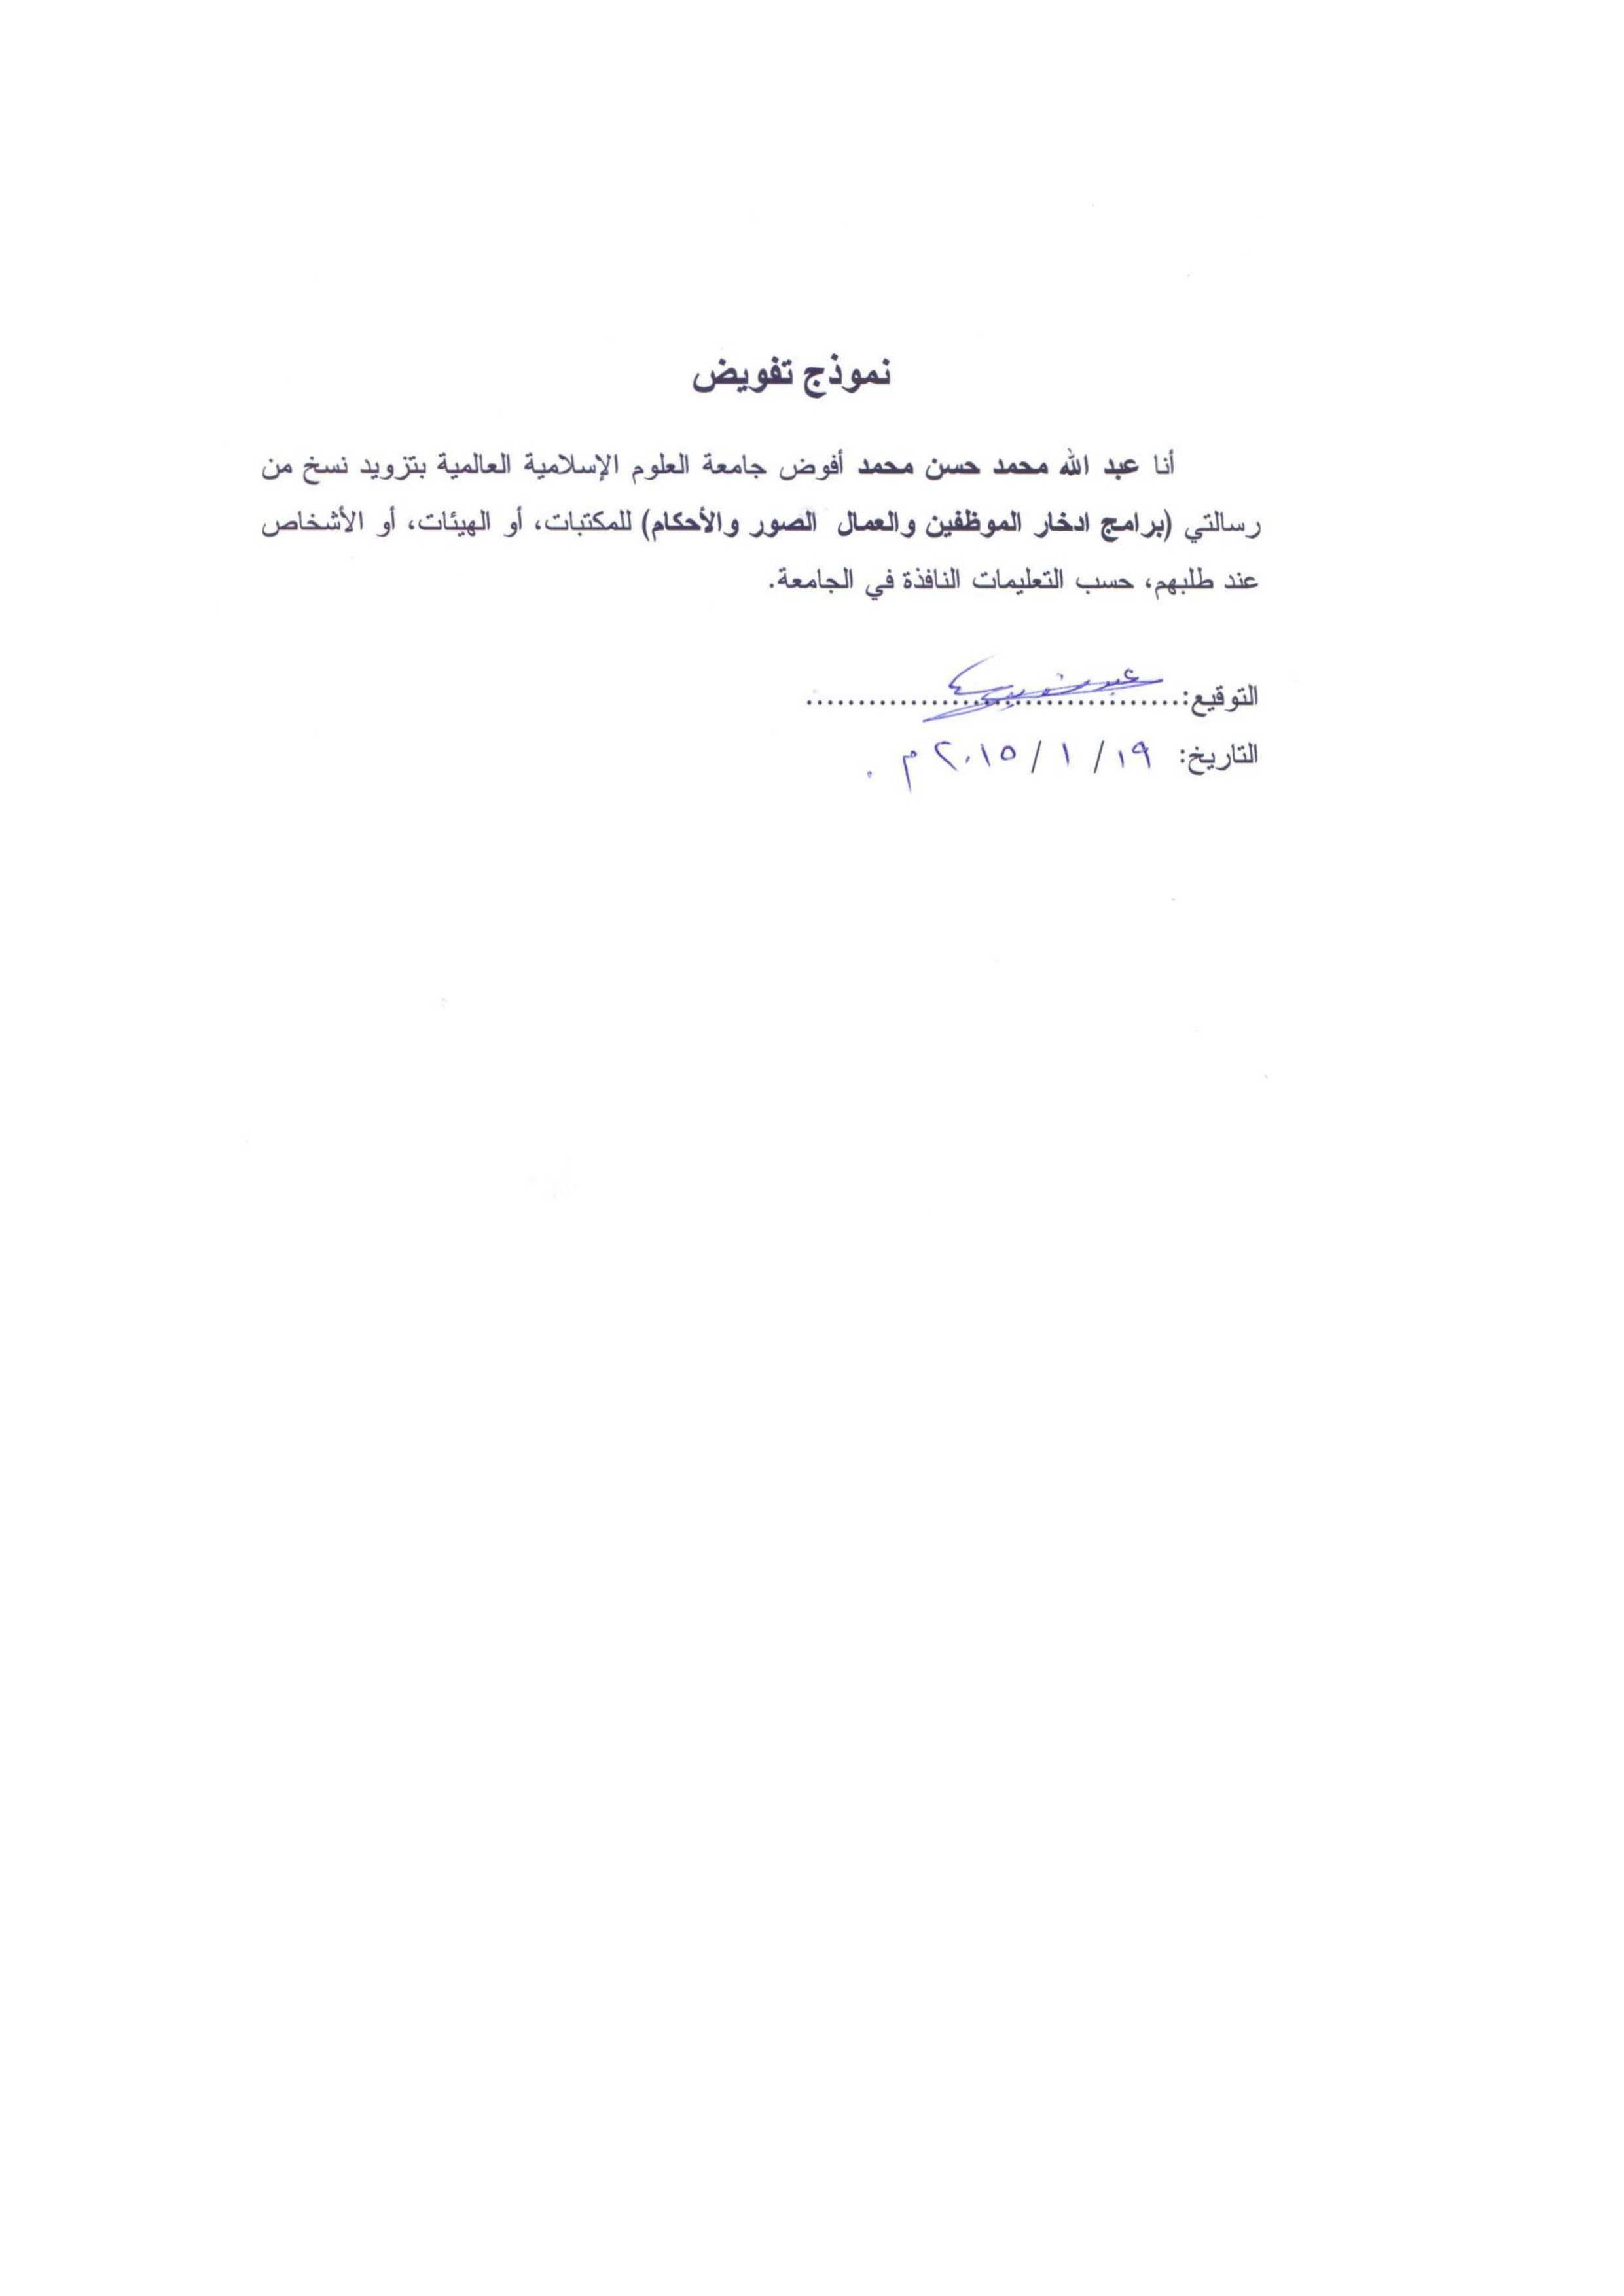 نموذج تفويض
أنا عبد الله محمد حسن محمد أفوض جامعة العلوم الإسلامية العالمية بتزويد نسخ من
رسالتي (برامج ادخار الموظفين والعمال الصور والأحكام) للمكتبات، أو الهيئات، أو الأشخاص
عند طلبهم، حسب التعليمات النافذة في الجامعة.
التوقيع:....................................
التاريخ: ١٩ / ١ / ٢٠١٥ م .